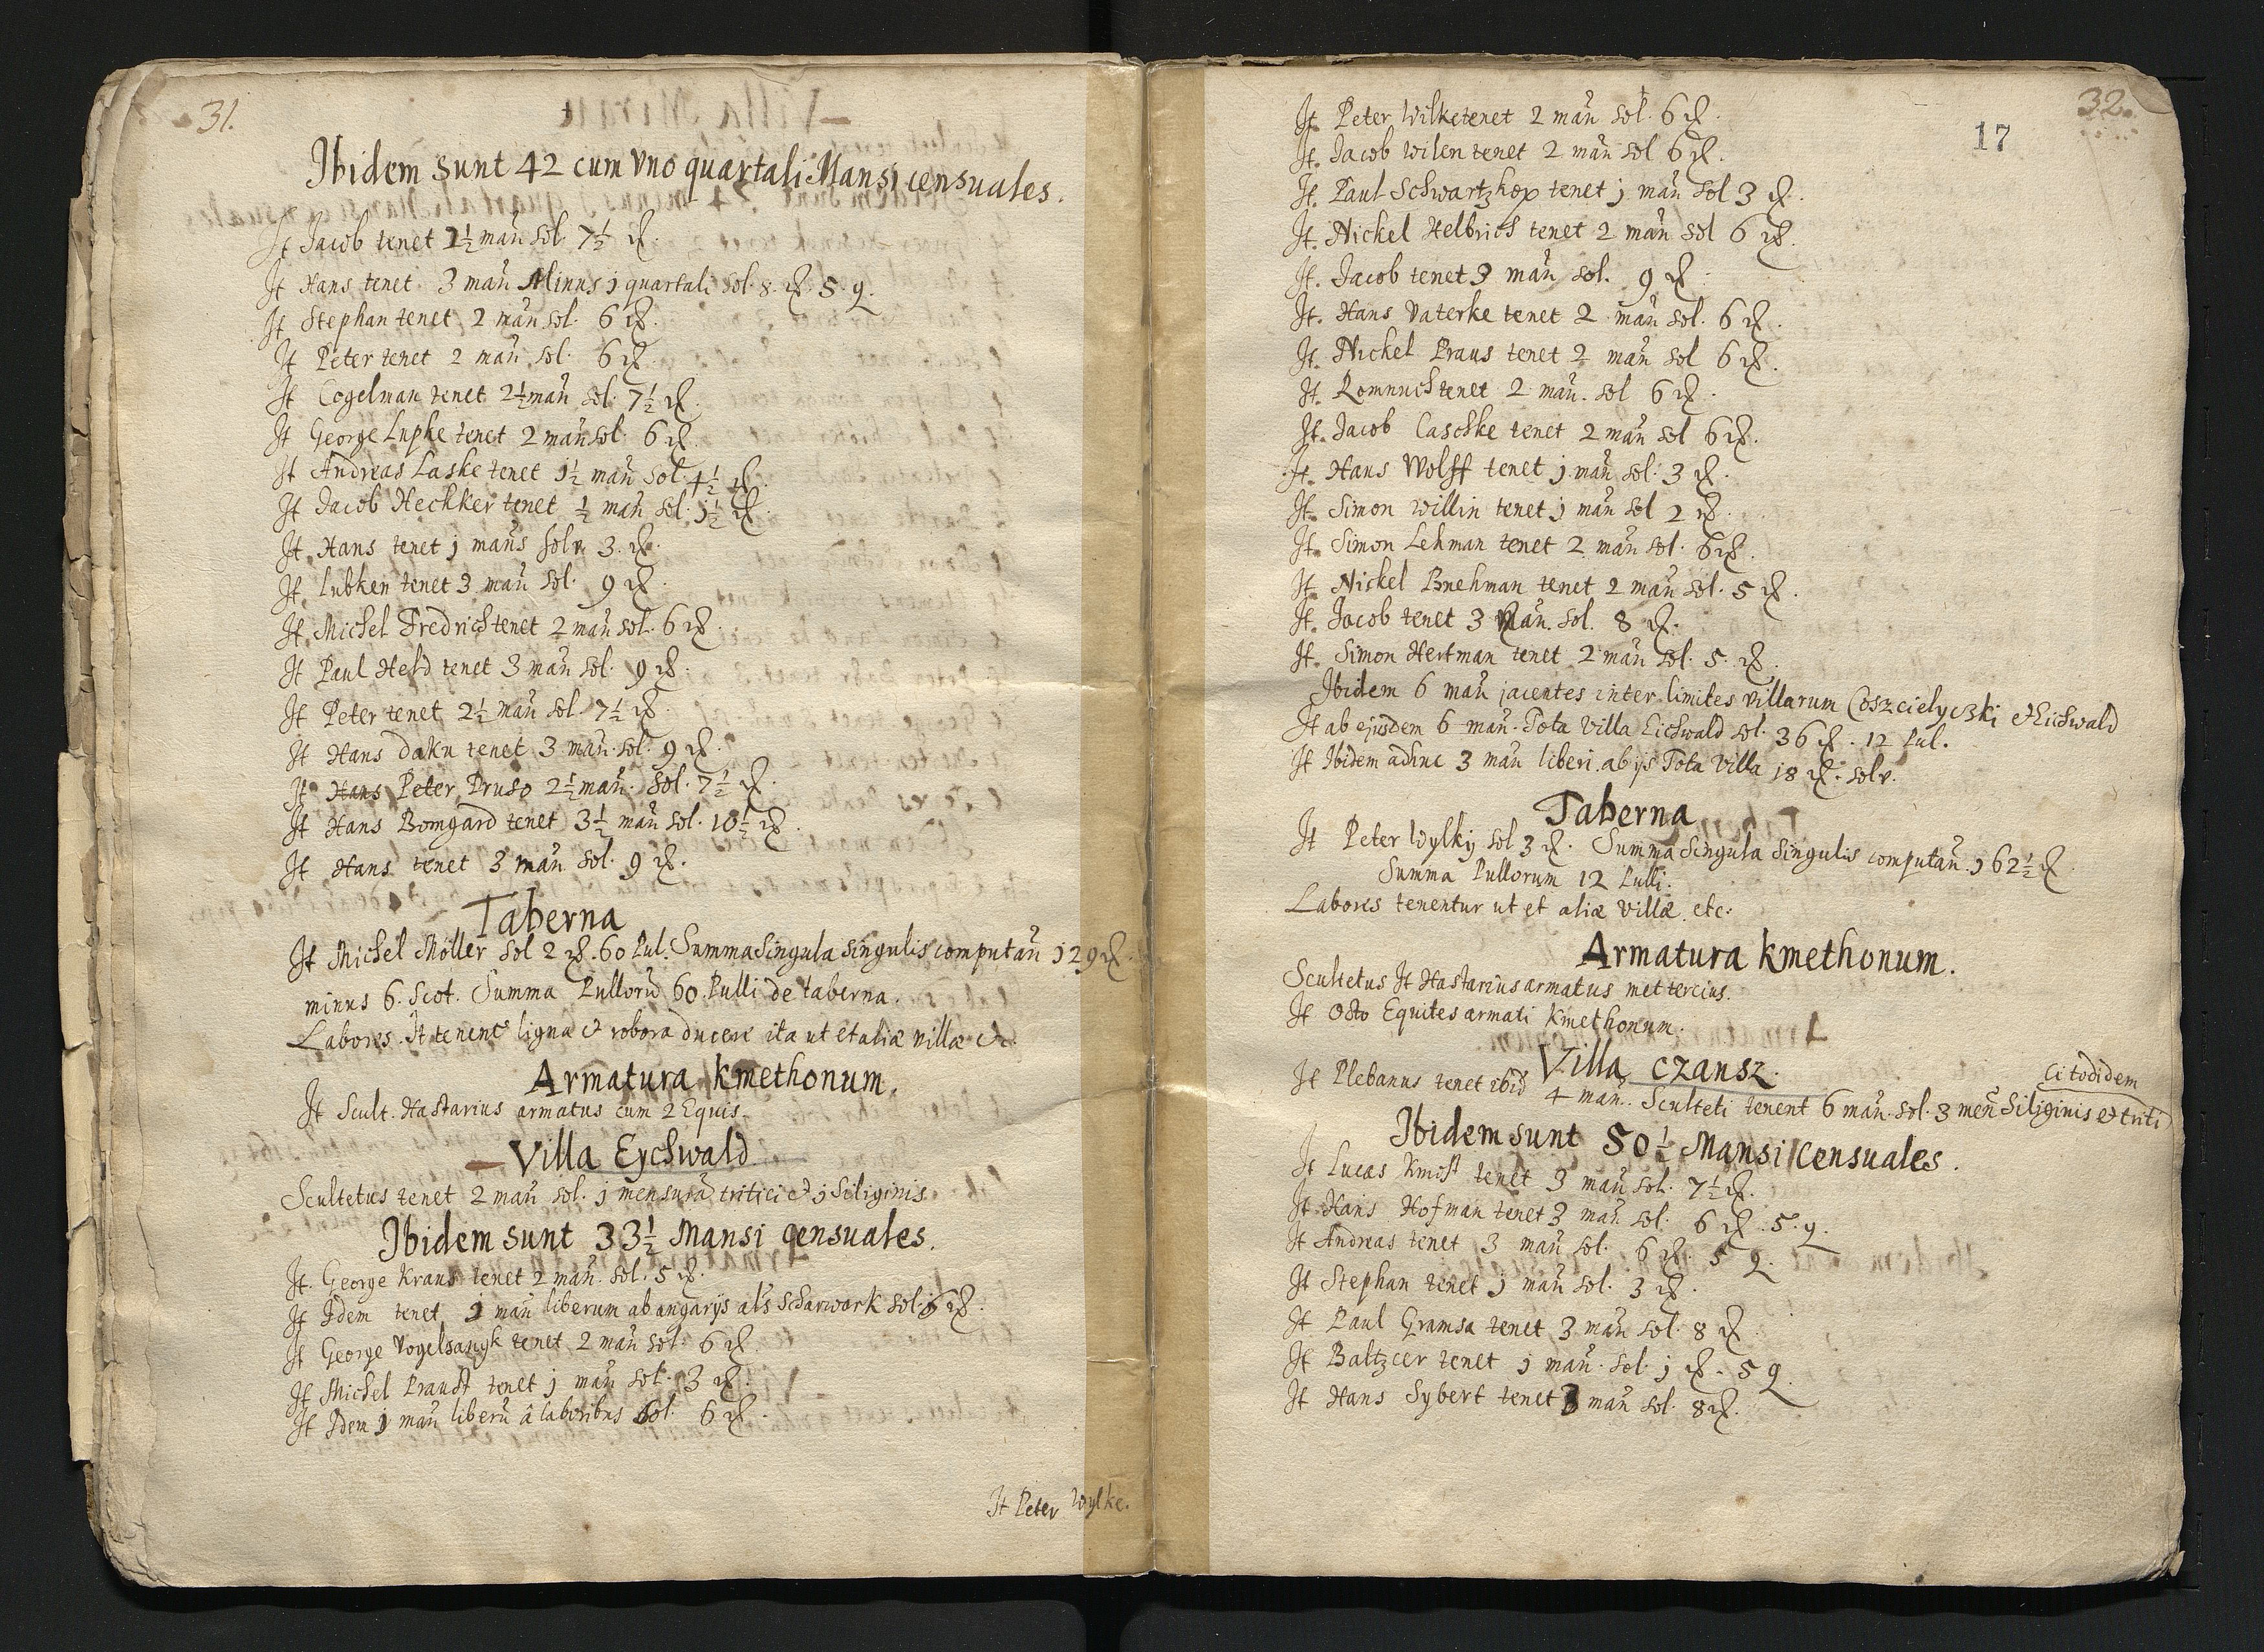 31.
Ibidem sunt 42 cum vno quartali Mansi censuales.
It Jacob tenet 2½ mañ sol. 7½ ₰.
It Hans tenet 3 mañ Minus j quartali sol. 8 ₰ 5 q.
It Stephan tenet 2 mañ sol. 6 ₰.
It Peter tenet 2 mañ sol. 6 ₰.
It Cogelman tenet 2½ mañ sol. 7½ ₰.
It George Lupke tenet 2 mañ sol. 6 ₰.
It Andreas Laske tenet j½ mañ sol. 4½ ₰.
It Jacob Hechker tenet ½ mañ sol. j½ ₰.
It. Hans tenet j mans solv. 3. ₰.
It. Lubken tenet 3 mañ sol. 9 ₰.
It. Michel Fredrich tenet 2 mañ sol. 6 ₰.
It Paul Held tenet 3 mañ sol. 9 ₰.
It Peter tenet 2½ mañ sol. 7½ ₰.
It Hans Daku tenet 3 mañ. sol. 9 ₰.
It Hans Peter Pruso 2½ mañ. sol. 7½ ₰.
It Hans Bomgard tenet 3½ mañ sol. 10½ ₰.
It Hans tenet 3 mañ sol. 9 ₰.
Taberna
It Michel Möller sol 2 ₰. 60 Pul. Summa singula singulis computañ 129 ₰.
minus 6. Scot. Summa Pulloru 60. Pulli de taberna.
Labores. It tenent ligna et robora ducere ita ut et aliæ villæ etc.
Armatura kmethonum.
It Scult. Hastarius armatus cum 2 Equis.
Villa Eychwald.
Scultetus tenet 2 mañ sol. j mensurã tritici et j Siliginis.
Ibidem sunt 33½ Mansi censuales.
It. George Kraus tenet 2 mañ. sol. 5 ₰.
It Idem tenet j mañ liberum ab angarijs als Scharwark sol. 6 ₰.
It George Vogelsangk tenet 2 mañ sol. 6 ₰.
It Michel Praust tenet j mañ sol. 3 ₰.
It Idem j mañ liberũ â laboribus sol. 6 ₰.
It Peter Wylke.
32.
17
It. Peter Wilke tenet 2 mañ sol. 6 ₰.
It. Jacob Wilen tenet 2 mañ sol 6 ₰.
It. Paul Schwartzkop tenet j mañ sol 3 ₰.
It. Nickel Helbrich tenet 2 mañ sol 6 ₰.
It. Jacob tenet 3 mañ sol. 9 ₰.
It. Hans Vaterke tenet 2 mañ sol. 6 ₰.
It. Nickel Praus tenet 2 mañ sol 6 ₰.
It. Romnuch tenet 2 mañ. sol 6 ₰.
It. Jacob Caschke tenet 2 mañ sol 6 ₰.
It. Hans Wolff tenet j mañ sol. 3 ₰.
It. Simon Willin tenet j mañ sol 2 ₰.
It. Simon Lehman tenet 2 mañ sol. 6 ₰.
It. Nickel Bnehman tenet 2 mañ sol. 5 ₰.
It. Jacob tenet 3 Mañ. sol. 8 ₰.
It. Simon Hertman tenet 2 mañ sol. 5 ₰.
Ibidem 6 mañ jacentes inter limites villarum Coszcielyczki et Eichwald
It ab ejusdem 6 mañ. Tota Villa Eichwald sol. 36 ₰. 12 Pul.
It Ibidem adhuc 3 mañ liberi. ab ijs Tota Villa j8 ₰. solv.
Taberna
It Peter Wylkij sol 3 ₰. Summa singula singulis computañ. j62½ ₰
Summa Pullorum 12 Pulli.
Labores tenentur ut et aliæ villæ. etc.
Armatura kmethonum.
Scultetus It Hastarius armatus met tercius.
It Octo Equites armati kmethonum.
Villa czansz.
It Plebanus tenet ibid 4 mañ. Sculteti tenent 6 mañ. sol. 3 meñ Siliginis et triti
ci todidem
Ibidem sunt 50½ Mansi censuales.
It Lucas Kmist tenet 3 mañ sol. 7½ ₰.
It. Hans Hofman tenet 3 mañ sol. 6 ₰. 5. q.
It Andreas tenet 3 mañ sol. 6 ₰. 5 q.
It Stephan tenet j mañ sol. 3 ₰.
It Paul Gramsa tenet 3 mañ sol. 8 ₰.
It Baltzcer tenet j mañ. sol. j ₰. 5 q.
It Hans Sybert tenet 3 mañ sol. 8 ₰.